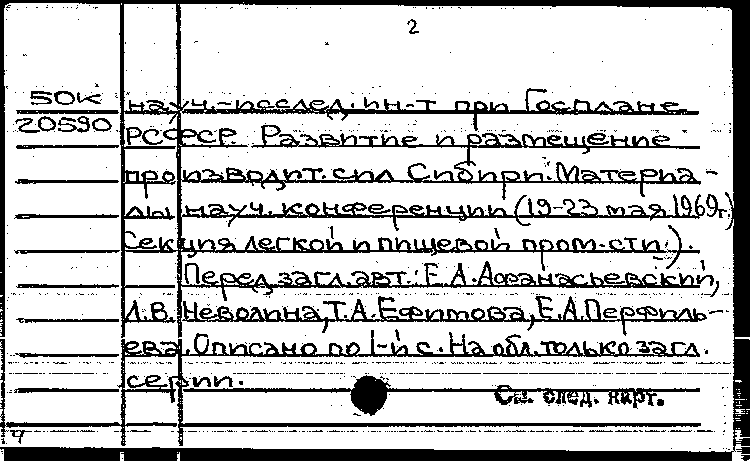 2
50К науч.-исслед. ин-т при Госплане
20590 РСФСР. Развитие и размещение
производит. сил Сибири. Материа-
лы науч. конференции (19-23 мая 1969г.)
Секция легкой и пищевой пром-сти.).
Перед загл. авт.: Е.А.Афанасьевский,
Л.В. Неволина, Т.А. Ефимова, Е.А.Перфиль-
ева. Описано по 1-й с. На обл. только загл.
серии.
См. след. карт.
ч